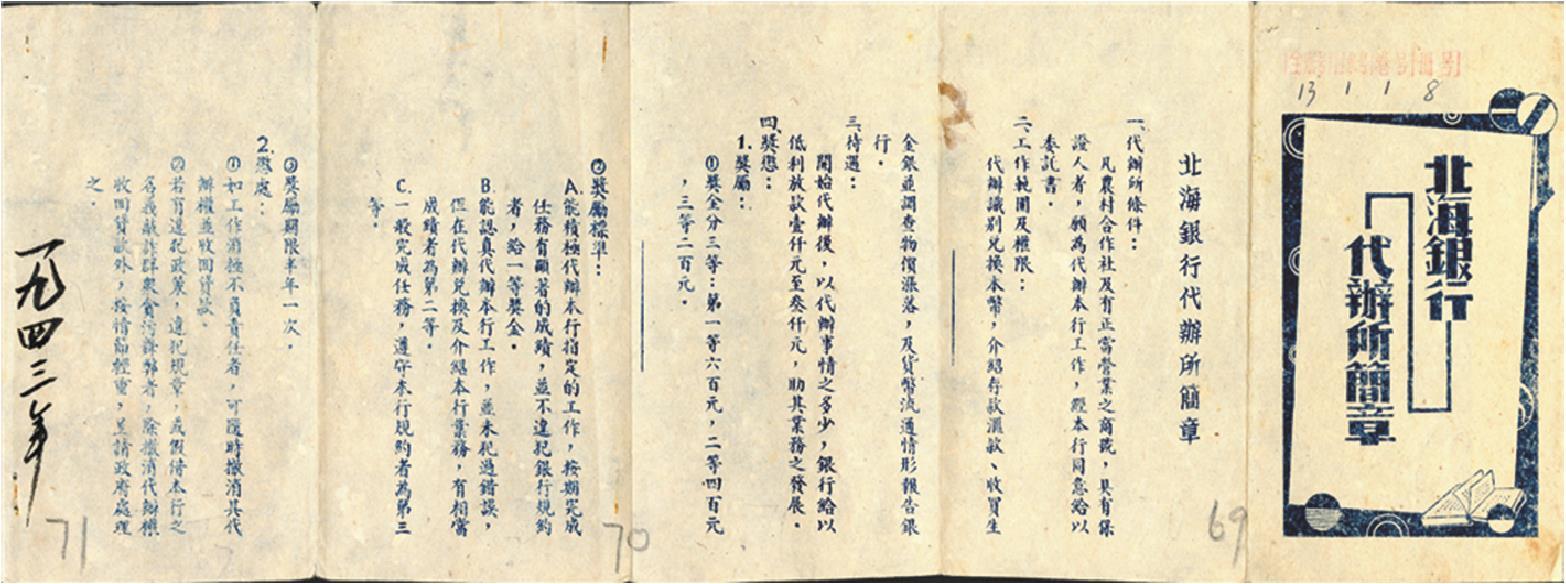 13 1 1 8
北海銀行
代辦所簡章
69
北海銀行代辦所簡章
一、代辦所條件：
凡農村合作社及有正當營業之商號，具有保
證人者，願為代辦本行工作，經本行同意給以
委託書。
二、工作範圍及權限：
代辦識別兌換本幣，介紹存款滙款、收買生
金銀並調查物價漲落，及貨幣流通情形報告銀
行。
三、待遇：
開始代辦後，以代辦事情之多少，銀行給以
低利放款壹仟元至叁仟元，助其業務之發展。
四、獎懲：
1.獎勵：
①獎金分三等：第一等六百元，二等四百元
，三等二百元。
70
②獎勵標準：
A.能積極代辦本行指定的工作，按期完成
任務有顯著的成績，並不違犯銀行規約
者，給一等獎金。
B.能認真代辦本行工作，並未犯過錯誤，
但在代辦兌換及介紹本行業務，有相當
成績者為第二等。
C.一般完成任務，遵守本行規約者為第三
等。
③獎勵期限半年一次。
2.懲處：
①如工作消極不負責任者，可隨時撤消其代
辦權並收回貸款。
②若有違犯政策，違犯規章，或假借本行之
名義敲詐群眾貪污舞弊者，除撤消代辦權
收回貸款外，按情節輕重，呈請政府處理
之。
一九四三年
71